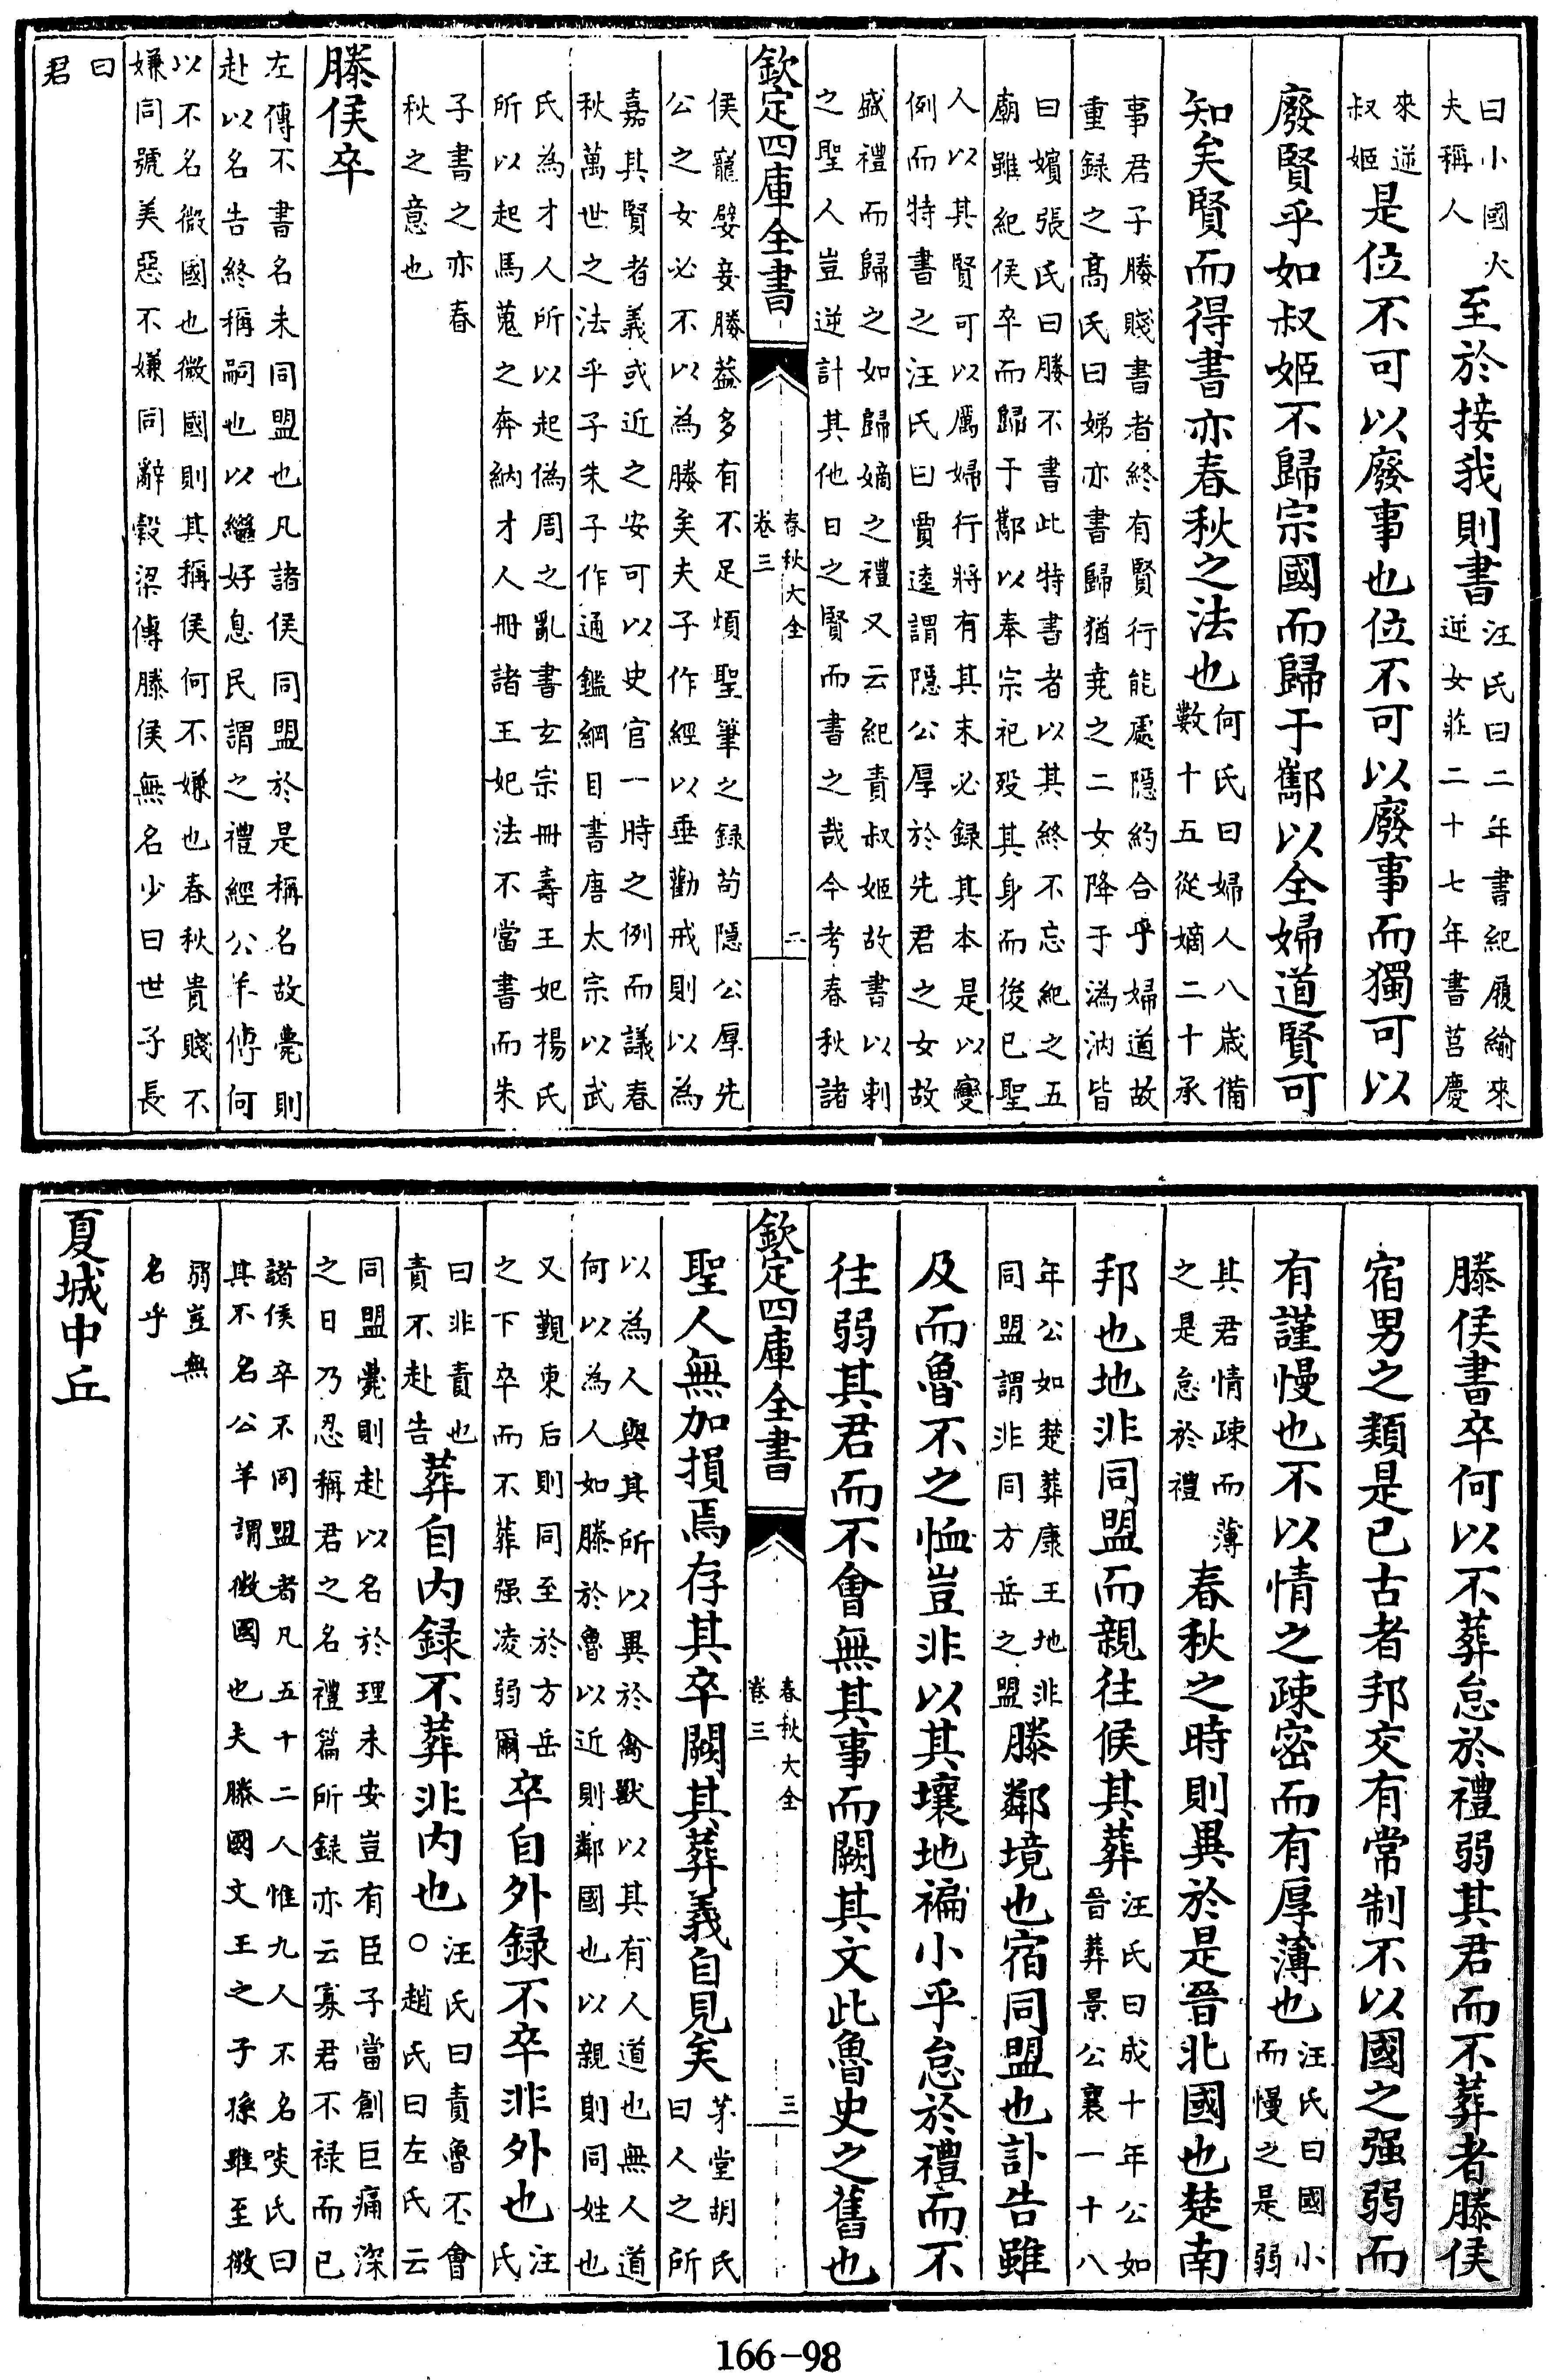 曰小國大夫稱人至於接我則書汪氏曰二年書紀履緰來逆女莊二十七年書莒慶
來逆叔姬是位不可以廢事也位不可以廢事而獨可以
廢賢乎如叔姬不歸宗國而歸于酅以全婦道賢可
知矣賢而得書亦春秋之法也何氏曰婦人八歳備數十五從嫡二十承
事君子媵賤書者終有賢行能處隱約合乎婦道故
重録之髙氏曰娣亦書歸猶堯之二女降于溈汭皆
曰嬪張氏曰媵不書此特書者以其終不忘紀之五
廟雖紀侯卒而歸于酅以奉宗祀殁其身而後已聖
人以其賢可以厲婦行將有其末必録其本是以變
例而特書之汪氏曰賈逵謂隠公厚於先君之女故
盛禮而歸之如歸嫡之禮又云紀責叔姬故書以刺
之聖人豈逆計其他日之賢而書之哉今考春秋諸
欽定四庫全書 春秋大全 卷三 二
侯寵嬖妾媵葢多有不足煩聖筆之録茍隱公厚先
公之女必不以為媵矣夫子作經以垂勸戒則以為
嘉其賢者義或近之安可以史官一時之例而議春
秋萬世之法乎子朱子作通鑑綱目書唐太宗以武
氏為才人所以起偽周之亂書玄宗冊壽王妃楊氏
所以起馬蒐之奔納才人冊諸王妃法不當書而朱
子書之亦春
秋之意也
滕侯卒
左傳不書名未同盟也凡諸侯同盟於是稱名故薨則
赴以名告終稱嗣也以繼好息民謂之禮經公羊傳何
以不名微國也微國則其稱侯何不嫌也春秋貴賤不
嫌同號美惡不嫌同辭穀梁傳滕侯無名少曰世子長
曰
君
滕侯書卒何以不葬怠於禮弱其君而不葬者滕侯
宿男之類是已古者邦交有常制不以國之强弱而
有謹慢也不以情之疎密而有厚薄也汪氏曰國小而慢之是弱
其君情疎而薄之是怠於禮春秋之時則異於是晉北國也楚南
邦也地非同盟而親往侯其葬汪氏曰成十年公如晉葬景公襄二十八
年公如楚葬康王地非同盟謂非同方岳之盟滕鄰境也宿同盟也訃告雖
及而魯不之恤豈非以其壤地褊小乎怠於禮而不
往弱其君而不會無其事而闕其文此魯史之舊也
欽定四庫全書 春秋大全 卷三 三
聖人無加損焉存其卒闕其葬義自見矣茅堂胡氏曰人之所
以為人與其所以異於禽獸以其有人道也無人道
何以為人如滕於魯以近則鄰國也以親則同姓也
又觀東后則同至於方岳之下卒而不葬强凌弱爾卒自外録不卒非外也汪氏
曰非責也責不赴告葬自内録不葬非内也汪氏曰責魯不會○趙氏曰左氏云
同盟薨則赴以名於理未安豈有臣子當創巨痛深
之日乃忍稱君之名禮篇所録亦云寡君不禄而已
諸侯卒不同盟者凡五十二人惟九人不名啖氏曰
其不名公羊謂微國也夫滕國文王之子孫雖至微
弱豈無
名乎
夏城中丘
166-98